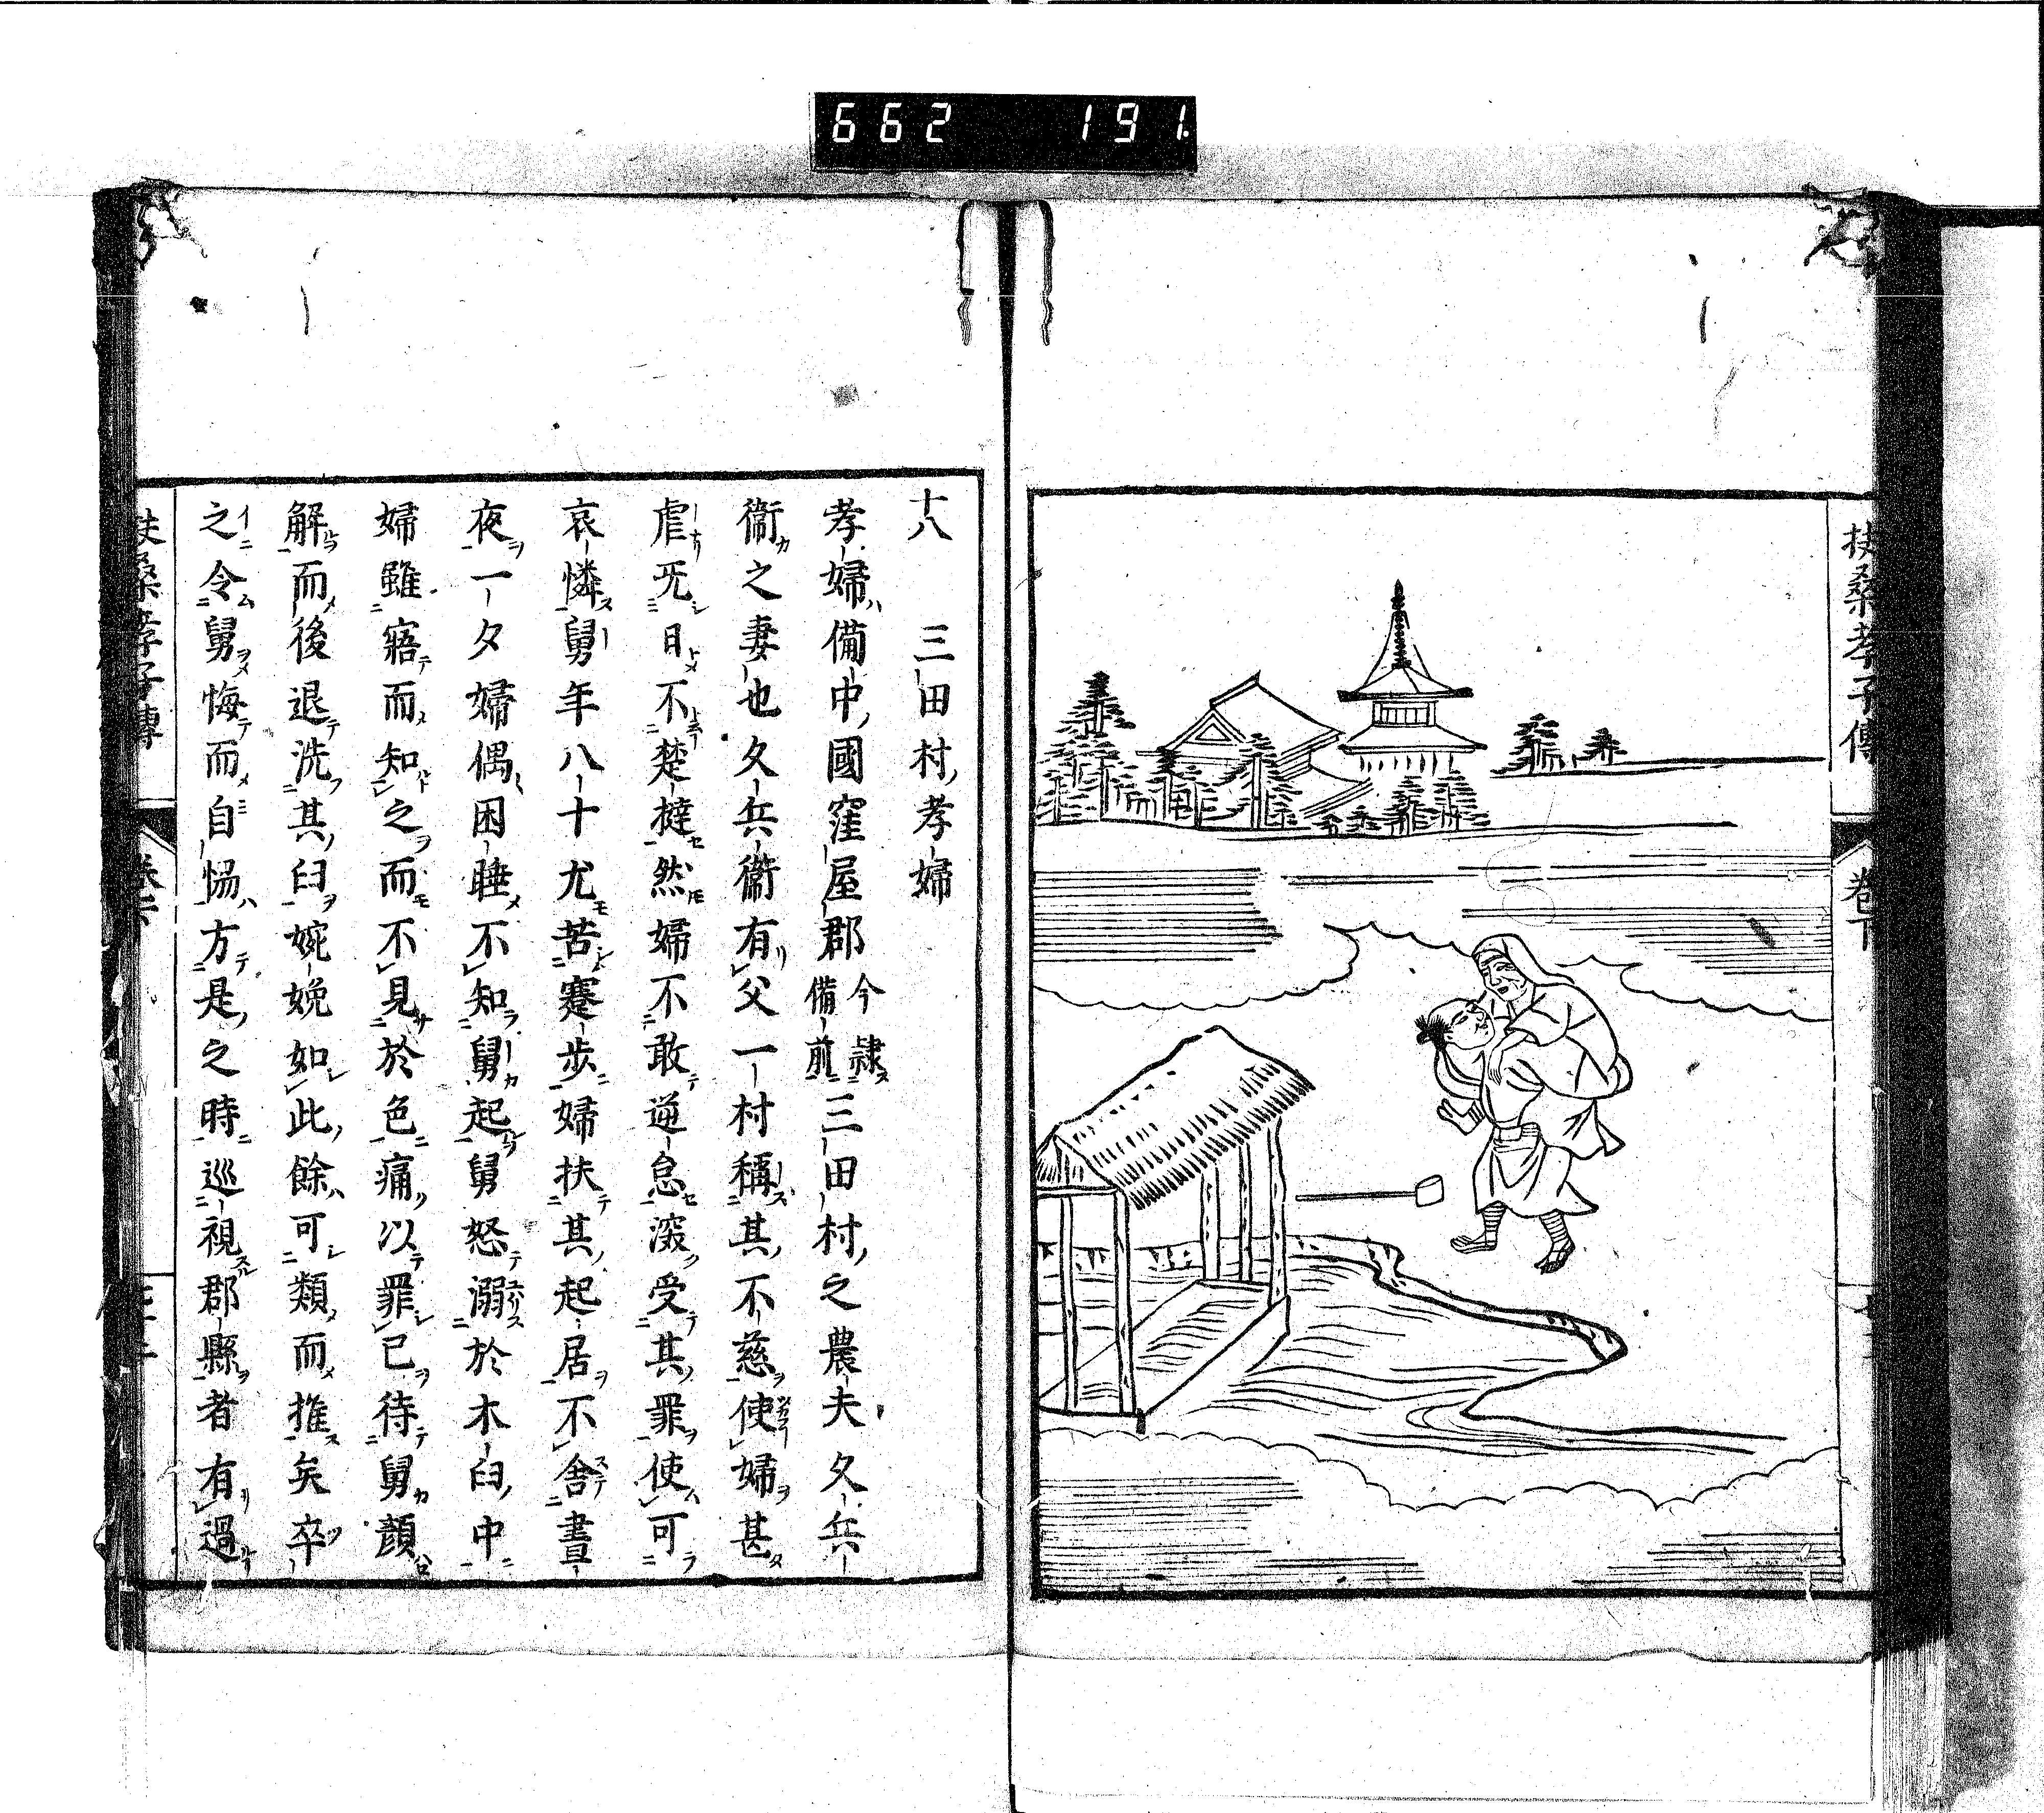 662 191
扶桑孝子傳 卷下
十八 三田村孝婦
孝婦備中國窪屋郡今隷備前三田村之農夫久兵
衞之妻也久兵衞有父一村稱其不慈使婦甚
虐旡日不楚撻然婦不敢逆怠滾受其罪使可
哀憐舅年八十尤苦蹇步婦扶其起居不舎晝
夜一夕婦偶困睡不知舅起舅怒溺於木臼中
婦雖寤而知之而不見於色痛以罪已待舅顔
解而後退洗其臼婉娩如此餘可類而推矣卒
之令舅悔而自惕方是之時巡視郡縣者有過
扶桑孝子傳